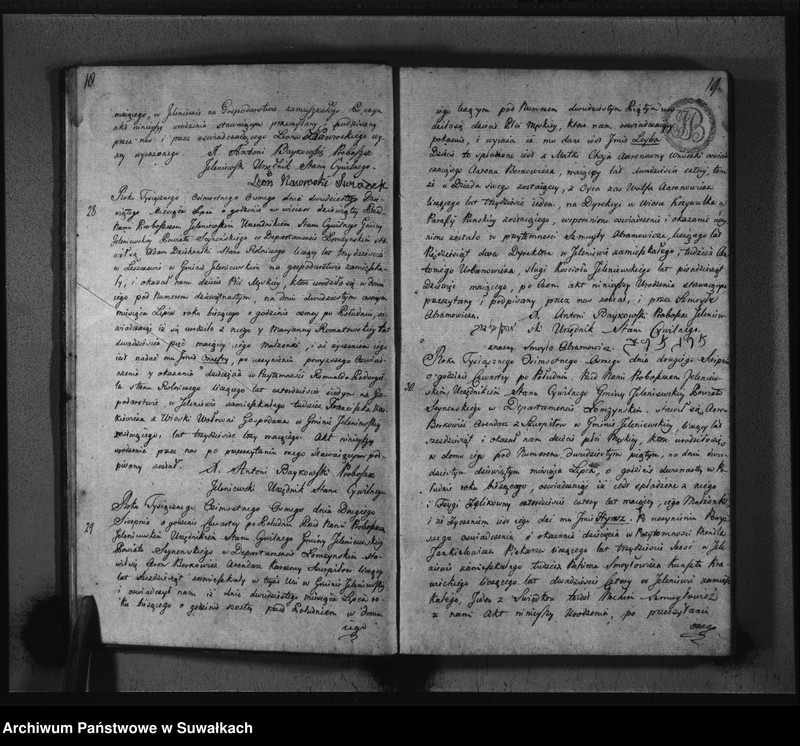 18
mającego, w Jeleniewie na Gospodarstwie zamieszkałego. Po czym
akt ninieyszy urodzenia stawaiącym przeczytany i podpisany
przez nas i przez oświadczaiącego Leona Nawrockiego wy
żey wyrażonego. X. Antoni Baykowski Proboszcz
Jeleniewski Urzędnik Stanu Cywilnego.
Leon Nawrocki
28
Roku Tysiącznego Osmsetnego Osmego dnia dwudziestego Dzie
wiątego Miesiąca Lipca o godzinie w wieczor dziewiątey Przed
Nami Proboszczem Jeleniewskim Urzędnikiem Stanu Cywilnego Gminy
Jeleniewskiey Powiatu Seynenskiego w Departamencie Łomżynskim sta
wił się Adam Dzickonski Stanu Rolniczego liczący lat trzydzieści
w Leszczewie w Gminie Jeleniewskiey na gospodarstwie zamieszka
ły, i okazał nam dziecie Płci Męskiey, które urodziło się w domu
iego pod Numerem, na dniu dwudziestym osmym
miesiąca Lipca roku bieżącego o godzinie osmey po Południu, oś
wiadczaiąc iż się urodziło z niego y Maryanny lat
dwadzieścia pięć maiącey iego Małżonki, i iż życzeniem iego
iest nadać mu Imie, po uczynieniu powyższego Oswiad
czenia y okazaniu dziecięcia w Przytomności Romualda
la stanu Rolniczego liczącego lat czterdzieści siedym na Go
podarstwie w Jeleniewie zamieszkałego tudzież Franciszka
kiewicza z Wioski Wołowni Gospodarza w Gminie Jeleniewskiey
zostaiącego, lat trzydzieści trzy maiącego. Akt ninieyszy
urodzenia przez nas po przeczytaniu onego Stawaiącym pod
pisany został. X. Antoni Baykowski Proboszcz
Jeleniewski Urzędnik Stanu Cywilnego
29
Roku Tysiącznego Osmsetnego Osmego dnia Drugiego
Sierpnia o godzinie Czwartey po Południu Przed Nami Proboszczem
Jeleniewskim Urzędnikiem Stanu Cywilnego Gminy Jeleniewskiey
Powiatu Seynenskiego w Departamencie Łomżynskim Sta
wił się Aron Berkowicz Arendarz Karczmy Szurpiłow liczący
lat sześćdziesiąt zamieszkały w teyże Wsi w Gminie Jeleniewskiey
i oswiadczył nam iż dnia dwudziestego miesiąca Lipca ro
ku bieżącego o godzinie szostey przed Południem w domu
iego
19
iego leżącym pod Numerem dwudziestym Piątym uro
dziło się dziecie Płci Męskiey, które nam oswiadczaiący
pokazał, i wyraża iż mu dane iest Imie Leyba.
Dziecie to spłodzone iest z Matki Chai Aaronowny Wnuczki oswiad
czaiącego Aarona Berkowicza, maiącey lat dwadzieścia cztery, tam
że u Dziada swego zostaiącey, z Oyca zaś Wolfa Aaronowicza
liczącego lat trzydzieści ieden, na Dyrekcyi w Wiosce Krzywulka w
Parafij Punskiey zostaiącego, wspomnione oswiadczenie i okazanie uczy
nione zostało w przytomności Szmuyły Abramowicza, liczącego lat
Pięćdziesiąt dwa Dyrektora w Jeleniewie zamieszkałego, tudzież An
toniego Urbanowicza, sługi kościoła Jeleniewskiego lat pięćdziesiąt
dziewięć maiącego, po czem akt ninieyszy Urodzenia stawaiącym
przeczytany i podpisany przez nas został, i przez Szmuyłę
Abramowicza. X. Antoni Baykowski Proboszcz Jeleniew
ski Urzędnik Stanu Cywilnego.
znaczy Smuyło Abramowicz
30.
Roku Tysiącznego Osmsetnego Osmego dnia drugiego Sierpnia
o godzinie Czwartey po Południu Przed Nami Proboszczem Jeleniew
skim, Urzędnikiem Stanu Cywilnego Gminy Jeleniewskiey Powiatu
Seynenskiego w Departamencie Łomżynskim, stawił się Aron
Berkowicz Arendarz z Szurpiłow w Gminie Jeleniewskiey, liczący lat
sześćdziesiąt i okazał nam dziecie płci Męskiey, które urodziło się
w domu iego pod Numerem dwudziestym piątym, na dniu dwu
dziestym dziewiątym miesiąca Lipca, o godzinie dwunastey w Po
łudnie roku bieżącego, oswiadczaiąc iż iest spłodzone z niego
i Feygi Zelikowny czterdzieści cztery lat maiącey, iego Małżonki
i iż życzeniem iest iego dać mu Imie. Po uczynieniu Powyż
szego oswiadczenia i okazaniu dziecięcia w Przytomności Mendla
Jankielowicza Piekarza liczącego lat trzydzieści sześć w Jele
niewie zamieszkałego tudzież
wieckiego liczącego lat dwadzieścia cztery w Jeleniewie zamiesz
kałego, Jeden z Swiadkow tudzież
z nami Akt ninieyszy Urodzenia, po przeczytaniu
onego
Archiwum Państwowe w Suwałkach